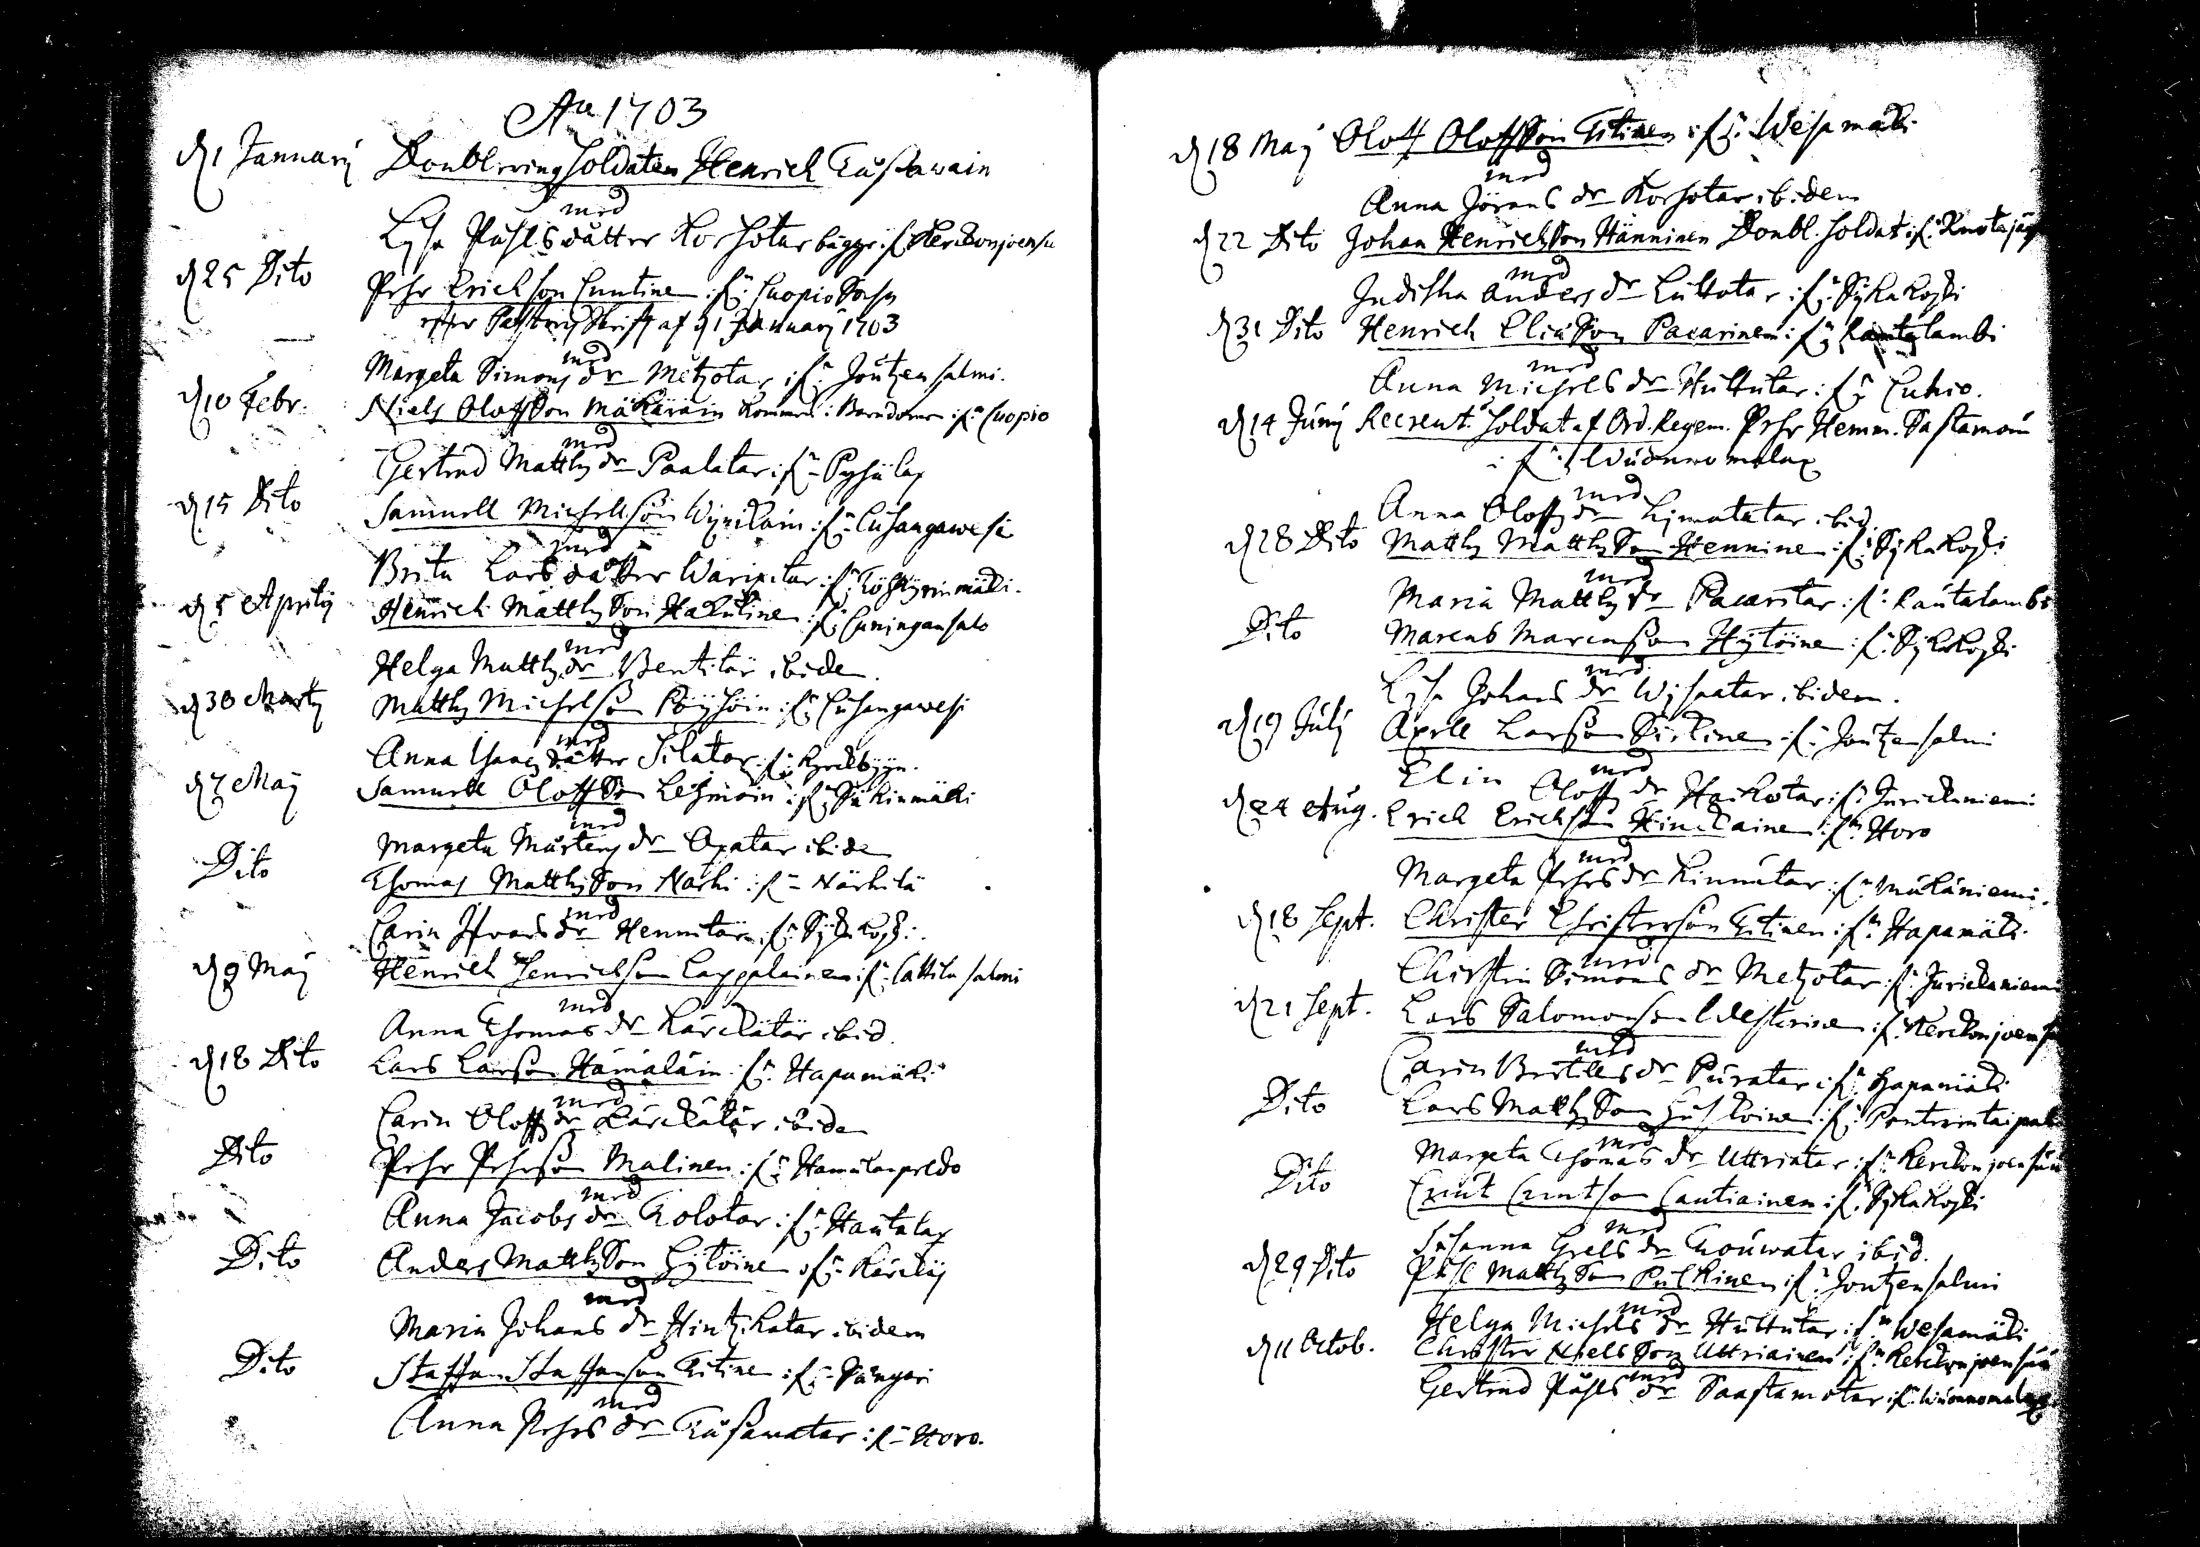 Ao 1703
d 1 Januarij Doubleringsoldaten Henrich Tussawain
med
Lisa Påhls dåtter Korhotar bägge if: Kerckonjoensu
d 25 Dito Pehr Erichson Cuntine if: Cuopio Sochn
efter Pastoris Skrifft af d 1 Januarij 1703
med
Margeta Simons dr Metzotar if: Joutzensalmi.
d 10 Febr: Niels Olofsson Mäkäräin if: Cuopio
med
Gertrud Matths dr Paalatar if: Pyhälax
d 15 Dito Samuell Michellson Wynikäin if: Cuhangawesi
med
Brita Lars dåtter Waripitar if:
d 5 Aprilij Henrich Matthsson Hakuline if: Cuningansalo
med
Helga Matths dr Bentitär ibidem.
d 30 Marty Matths Michelson Pöyhöin if: Cuhangawesi
med
Anna dåtter Silatar if:
d 7 Maij Samuell Olofsson Lehmoin if: Särkinmäki
med
Margeta Mårtens dr Apatar ibidem
Dito Thomas Matthsson Närhi if: Närhilä
med
Carin Ifvars dr Hennitar if: Sychekoski.
d 9 Maij Henrich Henrichson Lappalainen if: Cattilansalmi
med
Anna Thomas dr Kärckätär ibid.
d 18 Dito Lars Larsson Hämäläin if: Hapamäki
med
Carin Olofs dr Kärckätär ibidem
Dito Pehr Pehrson Malinen if: Hamulanpeldo
med
Anna Jacobs dr Tolotar if: Hautalax
Dito Anders Matthsson Hytöine if: Kärckiö
med
Maria Johans dr Hintzikatar ibidem
Dito Staffan Staffanson Titine if: Kangari
med
Anna Pehrs dr Tussawatar if: Horo.
d 18 Maij Olof Olofsson Titinen if: Wesamäki
med
Anna Jörans dr Korhotar ibidem
d 22 Dito Johan Henrichson Hänninen Doubl. soldat if:
med
Anders dr Luttotar if: Sykäkoski
d 31 Dito Henrich Eliæson Pacarinen if: Rautalambi
med
Anna Michels dr Huttutar if: Cuhio.
d 14 Junij Recreut: Soldat af Ord. Regem. Pehr Hemm. Sastamoin
if: Wuonnomalax
med
Anna Olofs dr Limatatar ibid.
d 28 Dito Matths Matthsson Henninen if: Sykäkoski
med
Maria Matths dr Pacaritar if: Rautalambi
Dito Marcus Marcusson Hytöine if: Sykäkoski
med
Lisa Johans dr Wisaatar ibidem.
d 19 Julij Axell Larsson Sirkinen if: Joutzensalmi
med
Elin Olofs dr Haikotar if: Jurickaniemi
d 24 Aug. Erich Erichson Hinckaine if: Horo
med
Margeta Pehrs dr Kinnutar if: Mukaniemi.
d 18 Sept. Christer Christersson Titinen if: Hapamäki
med
Chirstin Simons dr Metzotar if: Jurickaniemi
d 21 Sept. Lars Salomonson Westerine if: Kerckonjoensu
med
Carin Bertills dr Puratar if: Hapamäki
Dito Lars Matthsson Huskoine if:
med
Margeta Thomas dr Uttriatar if: Kerckonjoensuu
Dito Cnut Cnutson Cautiainen if: Sykäkoski
med
Susanna Grels dr Touwatar ibid.
d 29 Dito Påhl Matthsson Pulkinen if: Joutzensalmi
med
Helga Michels dr Huttutar if: Wesamäki
d 11 Octob. Christer Niels Son Uttriainen if: Kerckonjoensuu
med
Gertrud Påhls dr Saastamotar if: Wuonnomalax